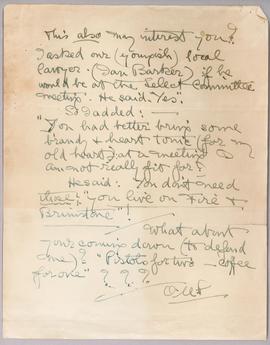 This also may interest you?
I asked our (youngish) local
lawyer (Dan Barker) if he
would be at the Select Committee
meeting. He said "Yes".
So I added: —
"You had better bring some
brandy & heart tonic (for my
old heart) at a meeting I
am not really fit for"
He said: You don't need
these: "you live on Fire &
Brimstone"!
What about
your coming down (to defend
me)? "Pistols for two — coffee
for one" ? ? ?